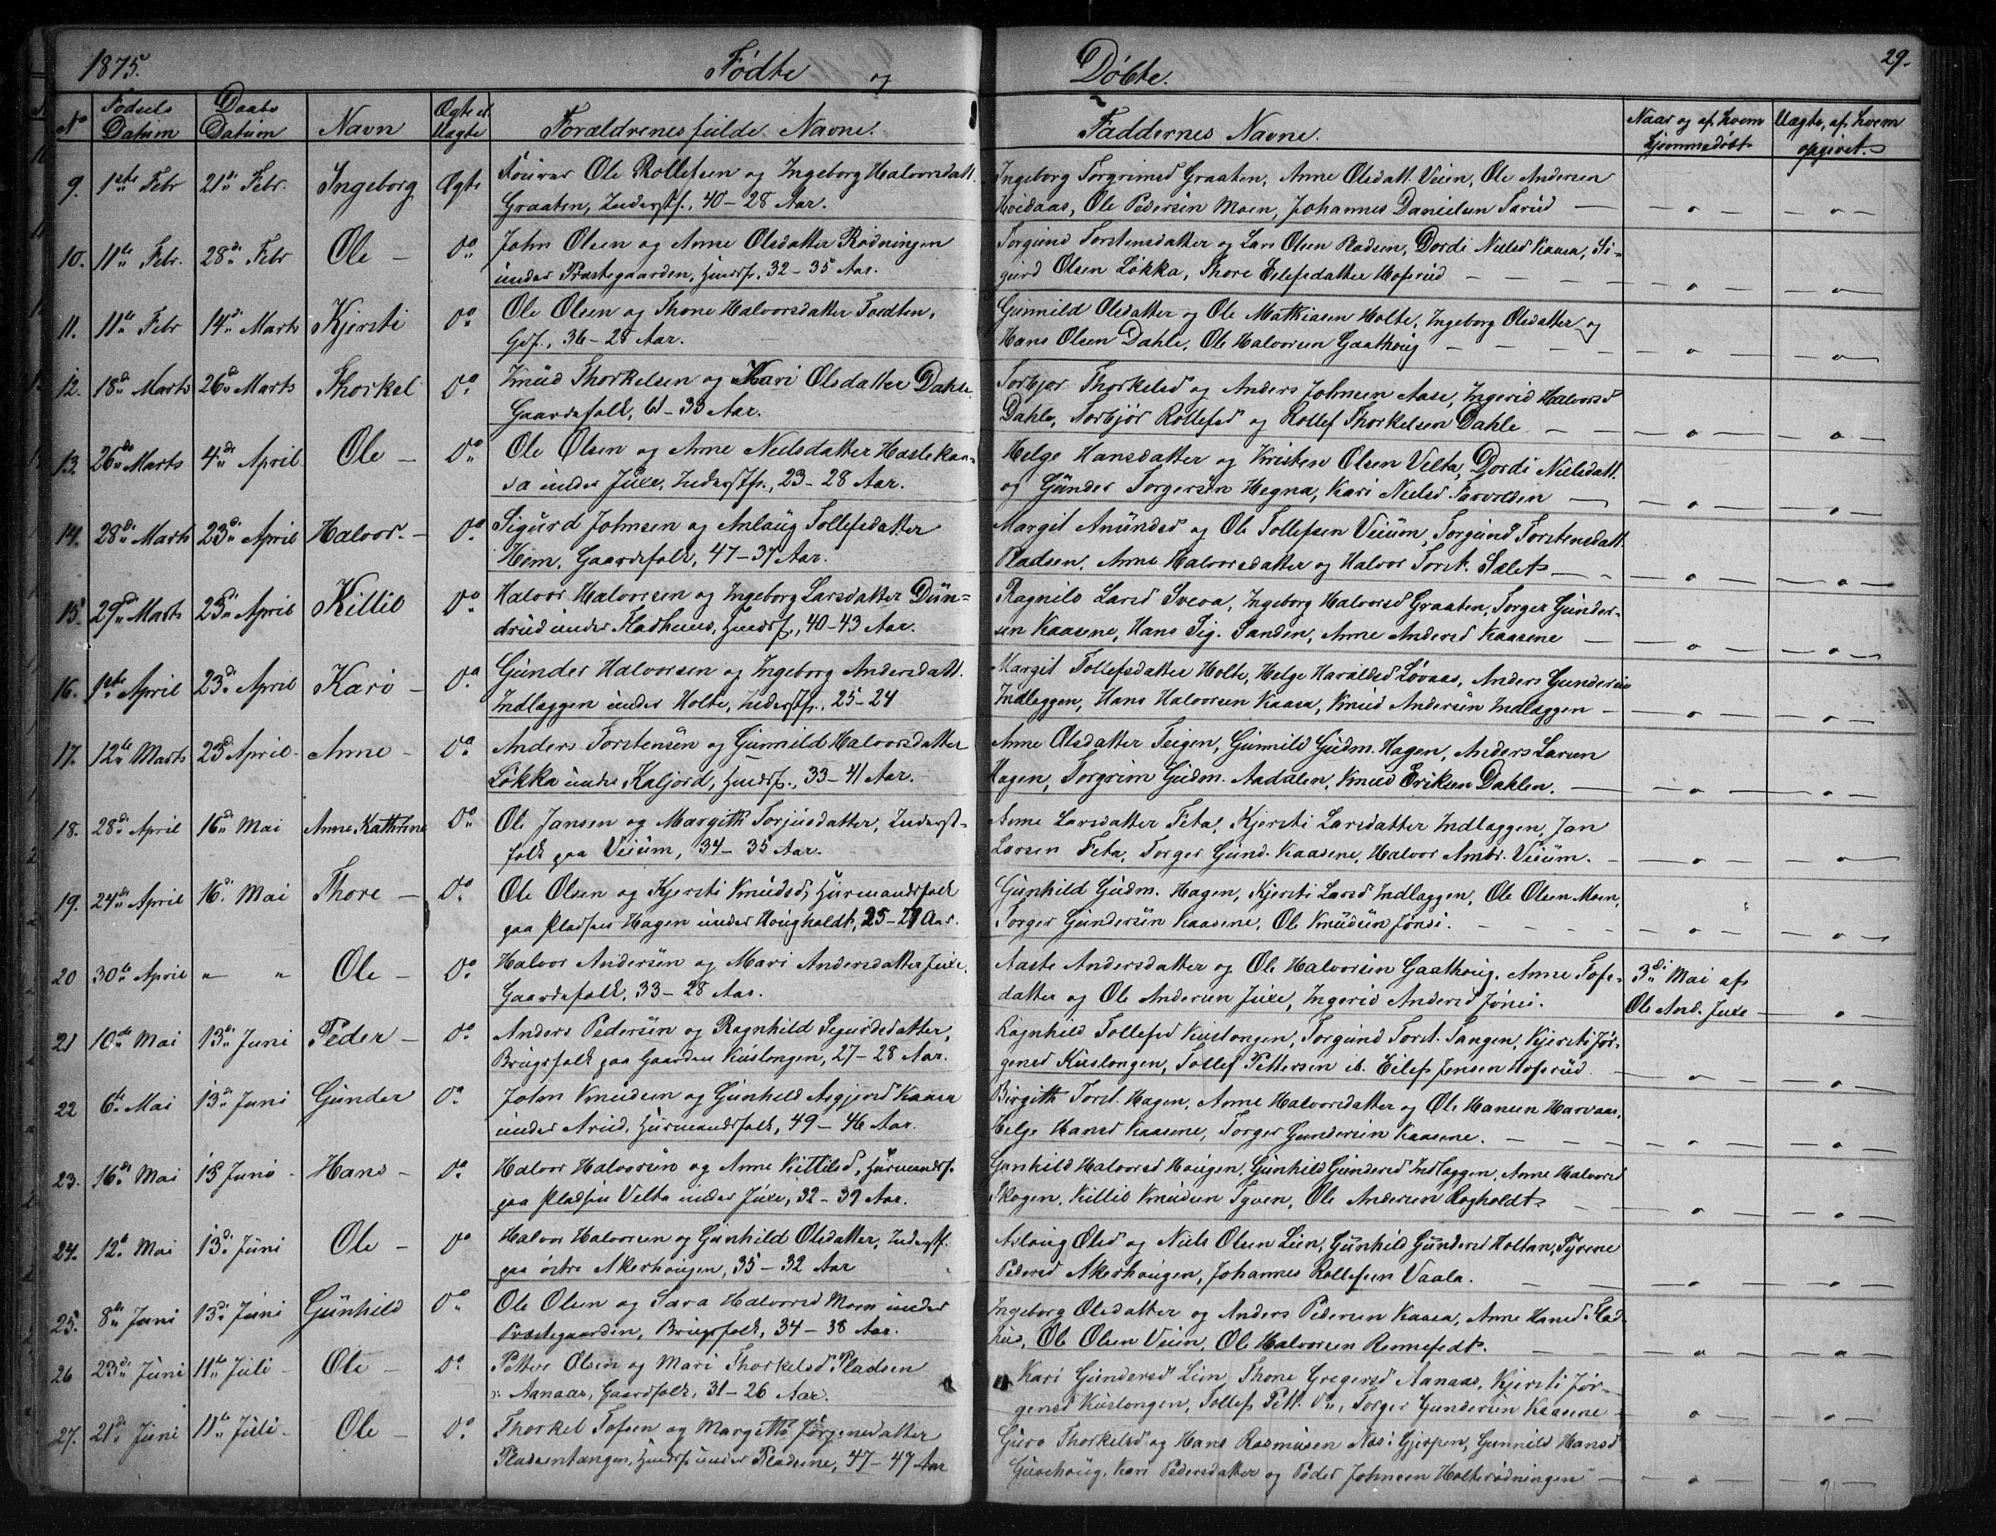 1875. Födte og Döbte. 29.
No Födsels Datum Daabs Datum Navn Ægte el. Uægte Forældrenes fulde Navne. Faddernes Navne. Naar og af hvem hjemmedöbt Uægte, af hvem opgivet.
9. 1ste Febr 21de Febr. Ingeborg Ægte Ole Rollefsen og Ingeborg Halvorsdatt. Ingeborg Torgrimsd Graaten, Anne Olsdatt. Veien, Ole Andersen
Graaten, Inderstf. 40-28 Aar. Hvidaas, Ole Pedersen Moen, Johannes Danielsen Tarud — o — — o —
10. 11te Febr. 28de Febr Ole — Do John Olsen og Anne Olsdatter Rödningen Torgund Torstensdatter og Lars Olsen Pladsen, Dordi Nielsd Kaasa, Si-
under Præstegaarden, Huusf. 32-35 Aar. gurd Olsen Lökka, Thore Eilefsdatter Hofsrud — — — o — — o —
11. 11te Febr 14de Marts Kjersti Do Ole Olsen og Thone Halvorsdatter Tvedten, Gunnild Olsdatter og Ole Mathiasen Holte, Ingeborg Olsdatter og
Gdf., 36-28 Aar. Hans Olsen Dahle, Ole Halvorsen Gaathoug — — — o — — o —
12. 18de Marts 26de Marts Thorkel Do Knud Thorkelsen og Kari Olsdatter Dahle Torbjor Thorkelsd og Anders Johnsen Aase, Ingerid Halvorsd
Gaardsfolk, 61-33 Aar. Dahle, Torbjör Rollefsd og Rollef Thorkelsen Dahle — — o — — o —
13. 26de Marts 4de April Ole — Do Ole Olsen og Anne Nielsdatter Haslekaa- Helge Hansdatter og Kristen Olsen Velta, Dordi Nielsdatt.
sa under Juxe, Inderstf., 23-28 Aar. og Gunder Torgersen Hegna, Kari Nielsd Tarvolden — — o — — o —
14. 28de Marts 23de April Halvor. — Do Sigurd Johnsen og Anlaug Tollefsdatter Margit Anundsd og Ole Tollefsen Veium, Torgund Torstensdatt.
Hem, Gaardsfolk, 47-37 Aar. Pladsen, Anne Halvorsdatter og Halvor Torst. Sælet — — o — — o —
15. 29de Marts 23de April Kittil Do Halvor Halvorsen og Ingeborg Larsdatter Dün- Ragnild Larsd Sveva, Ingeborg Halvorsd Graaten, Torger Gunder-
drud under Fladhuus, Huusf., 40-43 Aar. sen Kaasene, Hans Sig. Sanden, Anne Andersd Kaasene — — o — — o —
16. 1ste April 23de April Kari — Do Gunder Halvorsen og Ingeborg Andersdatt. Margit Tollefsdatter Holte, Helge Haraldsd Lövaas, Anders Gundersen
Indlæggen under Holte, Inderstf., 25-24 Indlæggen, Hans Halvorsen Kaasa, Knud Andersen Indlæggen — — o — — o —
17. 12te Marts 23de April. Anne — Do Anders Torstensen og Gunnild Halvorsdatter Anne Olsdatter Teigen, Gunnild Gudm. Hagen, Anders Larsen
Lökka under Kaljord, Huusf., 33-41 Aar. Hagen, Torgrim Gudm. Aadalen, Knud Eriksen Dahlen. — — o — — o —
18. 28de April 16de Mai Anne Kathrine Do Ole Jansen og Margith Torjusdatter, Inderst- Anne Larsdatter Feta, Kjersti Larsdatter Indlæggen, Jan
folk paa Veium, 34-35 Aar. Larsen Feta, Torger Gund. Kaasene, Halvor Ambr. Veium. — — o — — o —
19. 24de April 16de Mai Thore — Do Ole Olsen og Kjersti Knudsd, Huusmandsfolk Gunhild Gudm. Hagen, Kjersti Larsd Indlæggen, Ole Olsen Moen,
paa Pladsen Hagen under Hougholdt, 25-27 Aar. Torger Gundersen Kaasene, Ole Knudsen Jönsi. — — — o — — o —
20 30te April „ „ Ole — Do Halvor Andersen og Mari Andersdatter Juxe. Aaste Andersdatter og Ole Halvorsen Gaathoug, Anne Tofs- 3de Mai af
Gaardsfolk, 33-28 Aar. datter og Ole Andersen Juxe, Ingerid Andersd Jönsi. Ole And. Juxe — o —
21 10de Mai 13de Juni Peder — Do Anders Pedersen og Ragnhild Sigurdsdatter, Ragnhild Tollefsd Kuslongen, Torgund Torst. Tangen, Kjersti Jör-
Brugsfolk paa Gaarden Kuslongen, 27-28 Aar. gensd Kuslongen, Tollef Pettersen ib. Eilef Jensen Hofsrud — o — — o —
22 6te Mai 13de Juni Gunder Do John Knudsen og Gunhild Asgjersd Kaasa Birgith Torst. Hagen, Anne Halvorsdatter og Ole Hansen Harvaas,
under Aarud, Huusmandsfolk, 49-46 Aar. Helge Hansd Kaasene, Torger Gundersen Kaasene. — — — o — — o —
23. 16de Mai 13 Juni — Hans — Do Halvor Halvorsen og Anne Kittilsd, Huusmandsf. Gunhild Halvorsd Hougen, Gunhild Gundersd Indlæggen, Anne Halvorsd
paa Pladsen Velta under Juxe, 32-39 Aar. Skogen, Kittil Knudsen Tyven, Ole Andersen Rogholdt — — o — — o —
24. 12te Mai 13de Juni Ole — Do Halvor Halvorsen og Gunhild Olsdatter, Inderstf. Aslaug Olsd og Niels Olsen Lien, Gunhild Gundersd Holtan, Tyrene
paa östre Akerhougen, 35-32 Aar Pedersd Akerhougen, Johannes Rollefsen Vaala. — — o — — o —
25. 8de Juni 13de Juni Gunhild Do Ole Olsen og Sara Halvorsd Moen under Ingeborg Olsdatter og Anders Pedersen Kaasa, Anne Hansd Flad-
Præstegaarden, Brugsfolk, 34-38 Aar. hus, Ole Olsen Veien, Ole Halvorsen Rennefedt. — — — o — — o —
26 23de Juni 11te Juli — Ole — Do Petter Olsen og Mari Thorkelsd Pladsen Kari Gundersd Lien, Thone Gregersd Aanaas, Kjersti Jör-
v. Aanaas, Gaardfolk, 31-26 Aar. gensd Kuslongen, Tollef Pett. Do, Torger Gundersen Kaasene — — o — — o —
27. 21de Juni 11te Juli — Ole — Do Thorkel Tofsen og Margith Jörgensdatter Guro Thorkelsd og Hans Rasmusen Næs i Gjerpen, Gunnild Hansd
Pladsentangen, Huusf. under Pladsene, 47-47 Aar Gusehoug, Kari Pedersdatter og Peder Johnsen Holterödningen — — o — — o —